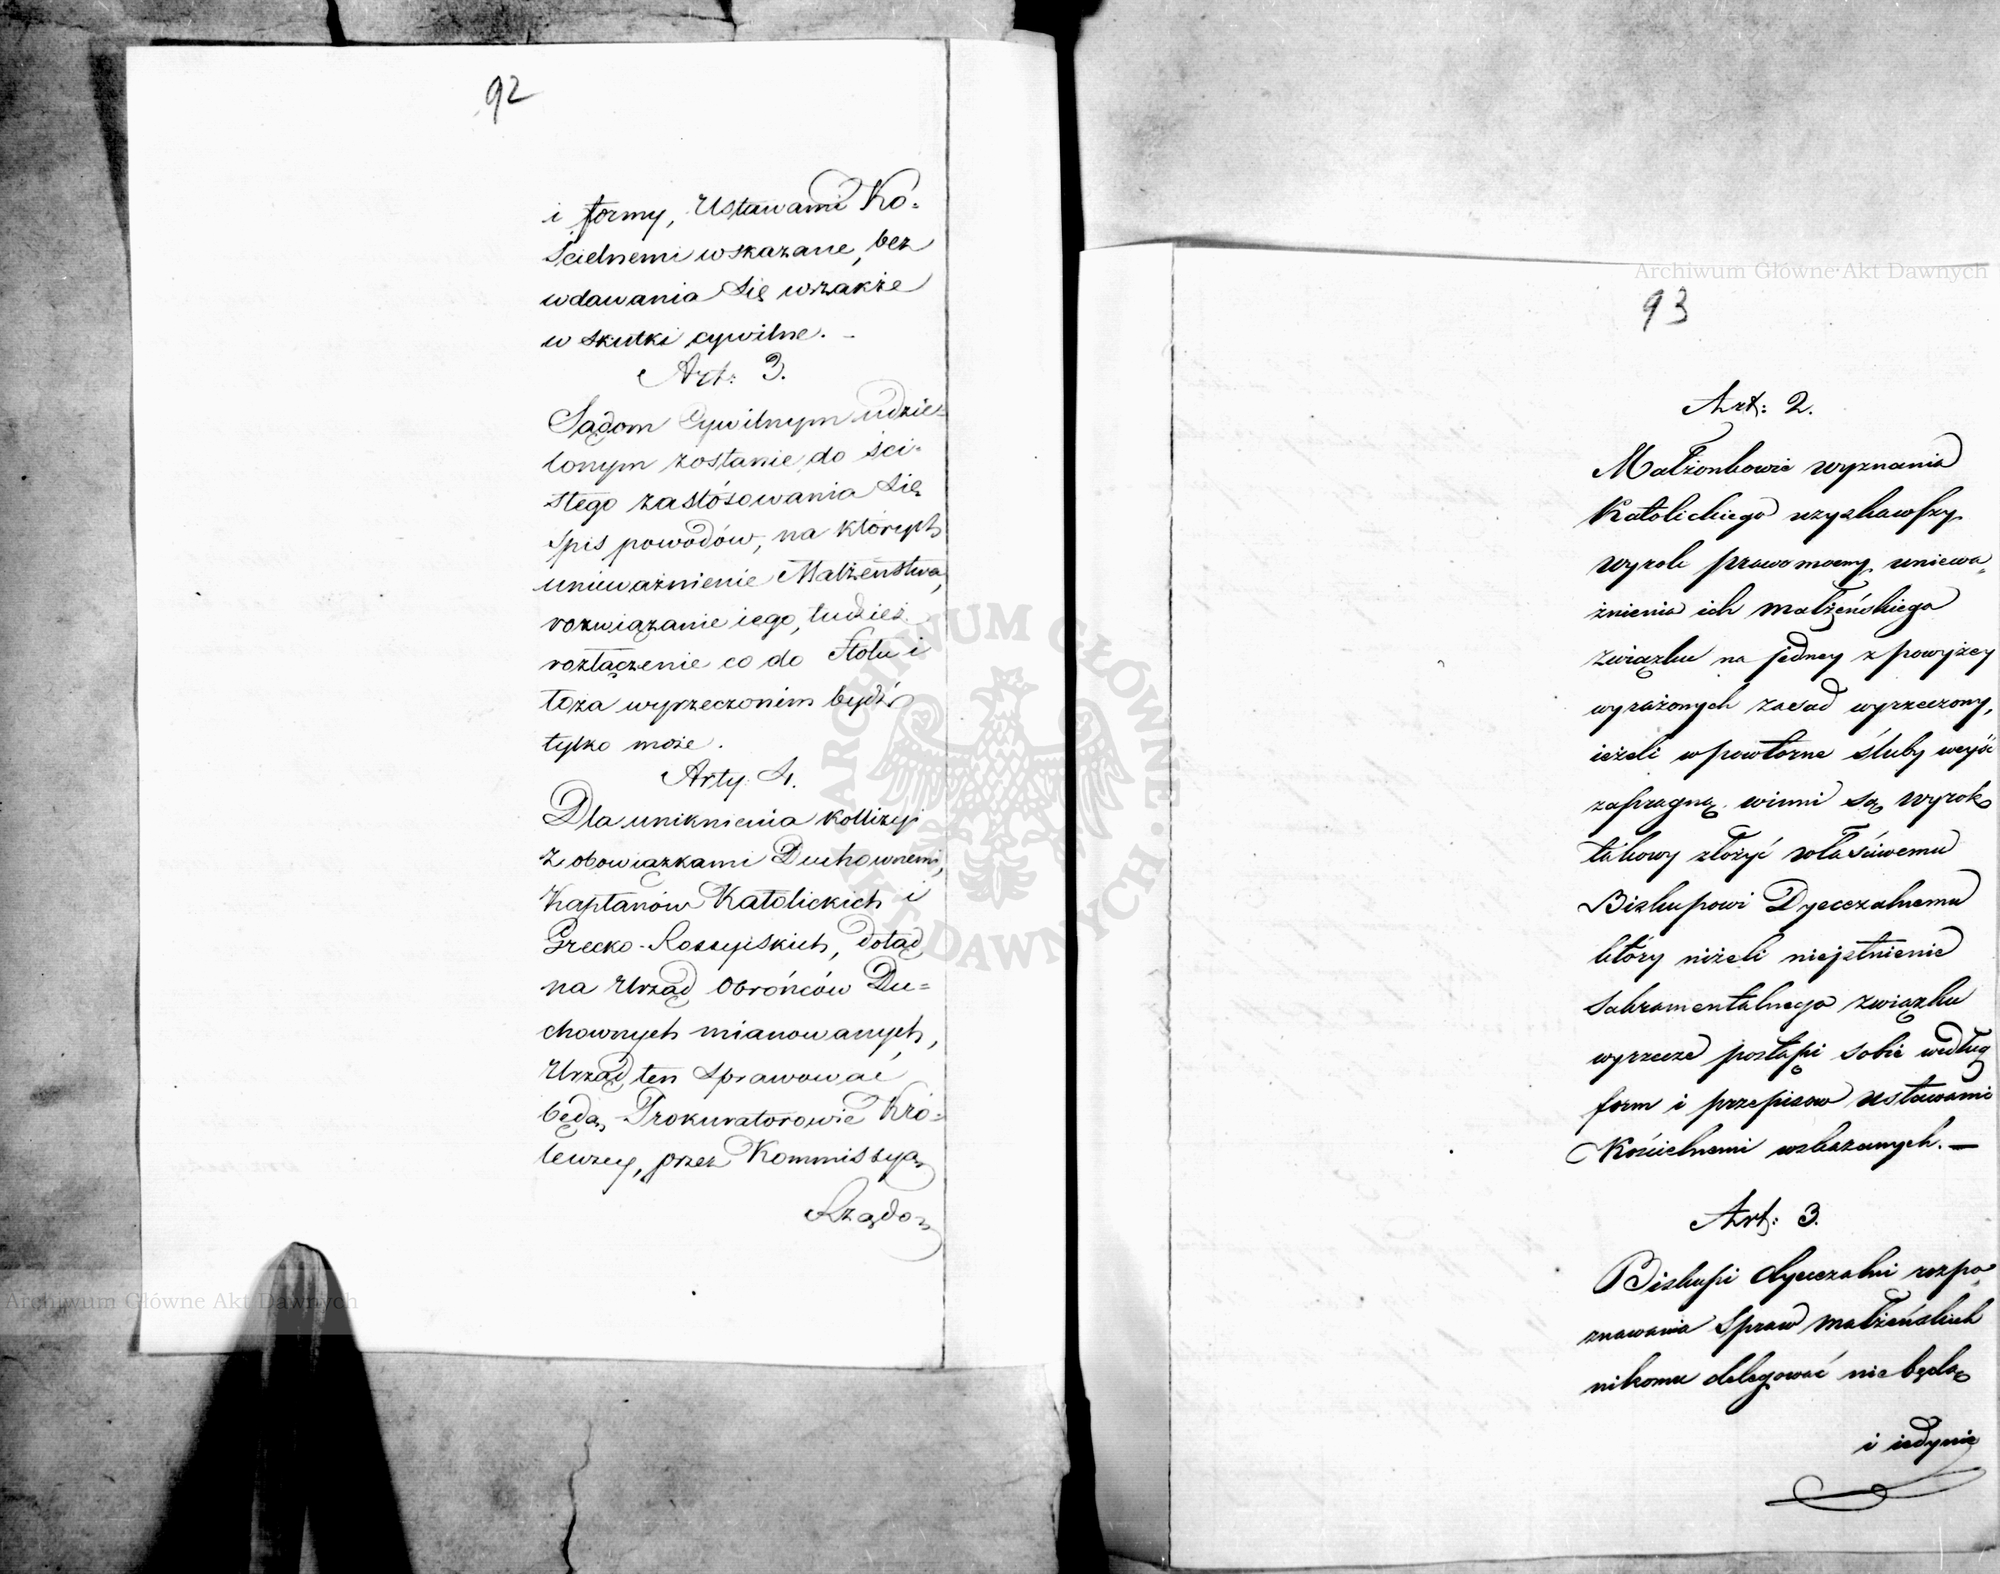 92
i formy, Ustawami Ko=
ścielnemi wskazane, bez
wdawania się wszakże
w skutki cywilne. -
Art: 3.
Sądom Cywilnym udzie=
lonym zostanie do ści=
słego zastósowania się
spis powodów, na których
unieważnienie Małżeństwa,
rozwiązanie iego, tudzież
rozłączenie co do stołu i
łoża wyrzeczonem bydź
tylko może.
Arty. 4.
Dla uniknienia kollizyi
z obowiązkami Duchownemi,
Kapłanów Katolickich i
Grecko-Rossyiskich, dotąd
na Urząd Obrońców Du=
chownych mianowanych,
Urząd ten sprawować
będą Prokuratorowie Kró=
lewscy, przez Kommissyą
Rządo=
93
Art: 2.
Małżonkowie wyznania
Katolickiego uzyskawszy
wyrok prawomocny uniewa=
żnienia ich małżeńskiego
związku na jedney z powyżey
wyrażonych zasad wyrzeczony,
ieżeli w powtórne śluby weyść
zapragną winni są wyrok
takowy złożyć właściwemu
Biskupowi Dyecezalnemu
który niżeli nieistnienie
Sakramentalnego związku
wyrzecze postąpi sobie według
form i przepisow ustawami
Kościelnemi wskazanych. —
Art: 3.
Biskupi dyecezalni rozpo=
znawania spraw małżeńskich
nikomu delegować nie będą
i iedynie
Archiwum Główne Akt Dawnych
Archiwum Główne Akt Dawnych
ARCHIWUM GŁÓWNE · AKT DAWNYCH ·